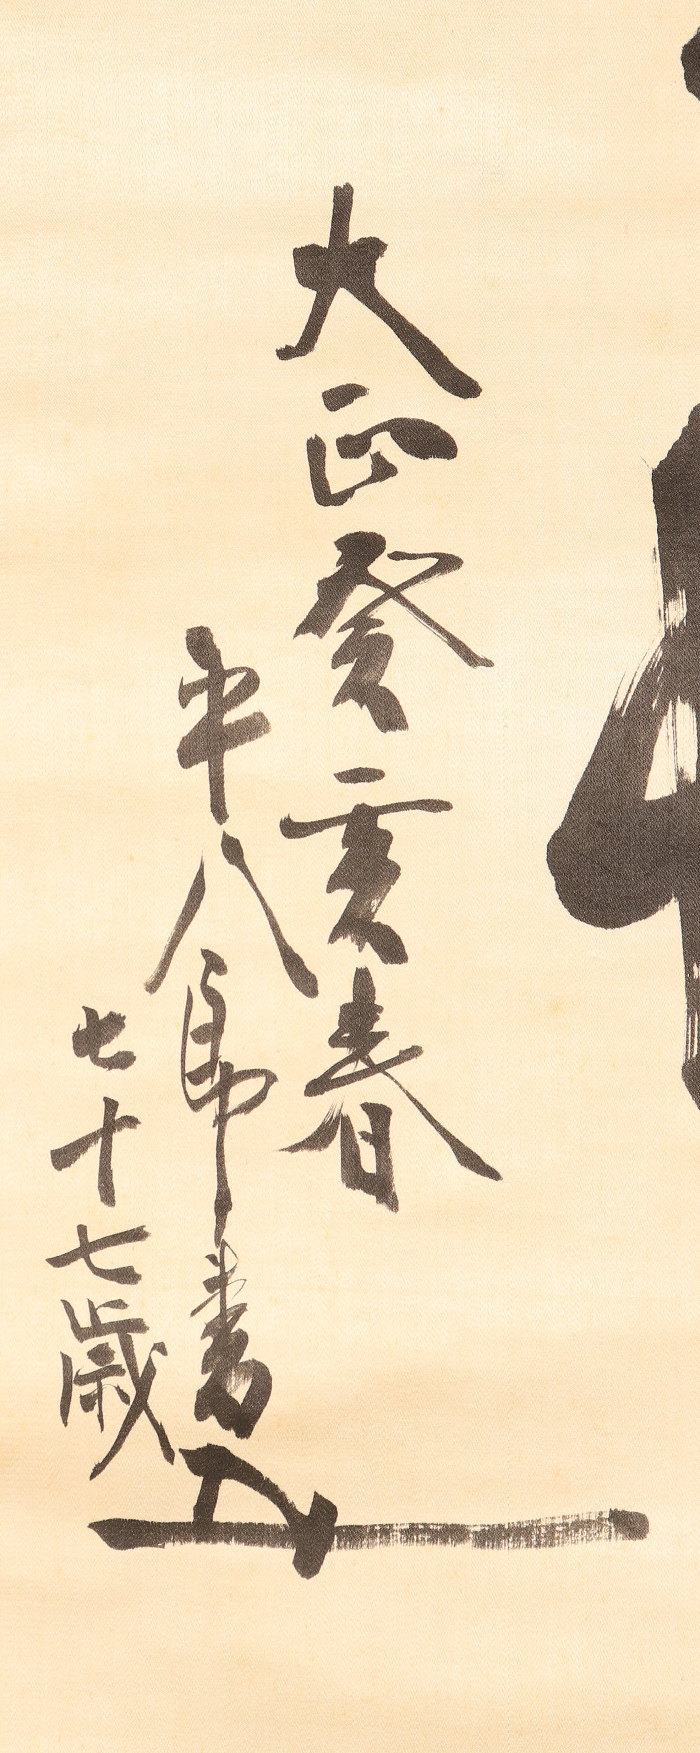 大正癸亥春
平八郎書
七十七歳